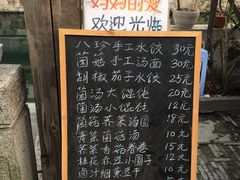 妈妈的爱
欢迎光临
八珍手工水饺 30元
菌菇手工汤面 30元
胡椒茄子水饺 25元
菌汤大馄饨 20元
菌汤小馄饨 12元
菌菇荠菜汤圆 18元
青菜菌菇汤 10元
荠菜香菇春卷 15元
桂花赤豆小圆子 12元
卤汁烟熏豆干 10元